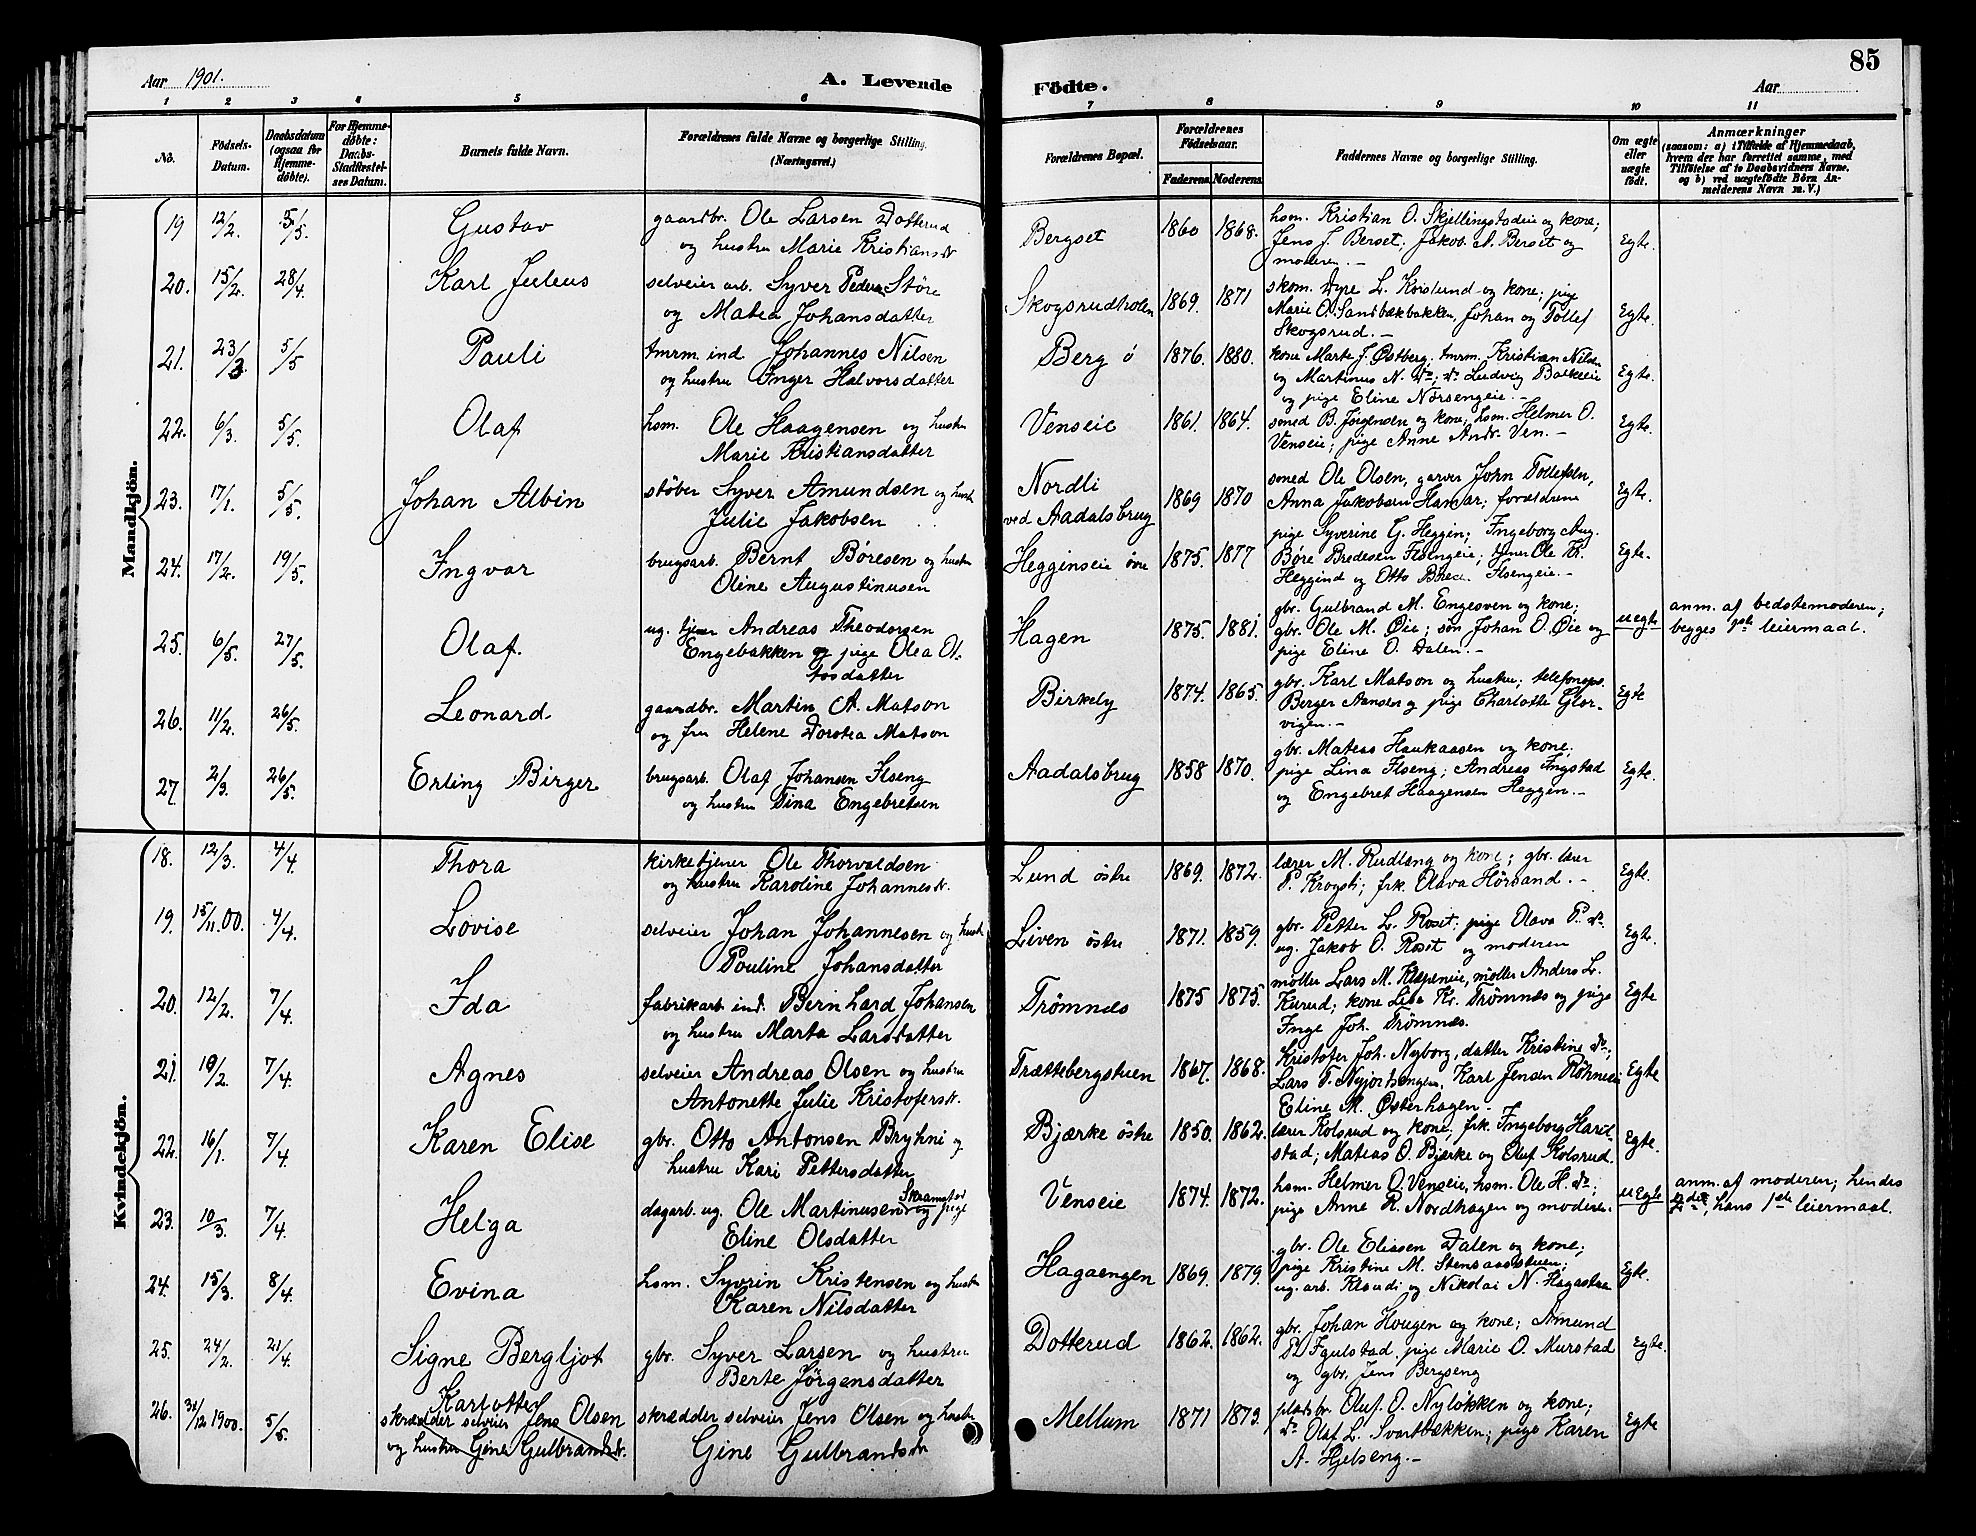 85
Aar 1901.
A. Levende Födte.
Aar
1 2 3 4 5 6 7 8 9 10 11
No.
Födsels-Datum.
Daabsdatum (ogsaa for Hjemme-döbte).
For Hjemme-döbte: Daabs-Stadfæstel-ses Datum.
Barnets fulde Navn.
Forældrenes fulde Navne og borgerlige Stilling. (Næringsvei.)
Forældrenes Bopæl.
Forældrenes Födselsaar.
Faderens. Moderens.
Faddernes Navne og borgerlige Stilling.
Om ægte eller uægte födt.
Anmærkninger
(saasom: a) i Tilfælde af Hjemmedaab,
hvem der har forrettet samme, med
Tilföielse af to Daabsvidners Navne,
og b) ved uægtefödte Börn An-
melderens Navn m. V.)
Mandkjön.
19 12/2. 5/5. Gustav gaardbr. Ole Larsen Dotterud
og hustru Marie Kristiansdt
Bergset 1860 1868.
hsm. Kristian O. Skjellingstadeie og kone;
Jens J. Berset; Jakob A. Berset og
moderen. —
Egte.
20. 15/2. 28/4. Karl Julius selveier arb. Syver Peders. Støre
og Matea Johansdatter
Skogsrudholen 1869. 1871
skom. Dyre L. Koislund og kone; pige
Marie O. Sandbækbakken, Johan og Tollef
Skogsrud. —
Egte.
21. 23/3. 5/5 Pauli tmrm. ind Johannes Nilsen
og hustru Inger Halvorsdatter
Berg ö 1876. 1880.
kone Marte J. Østberg. tmrm. Kristian Nils.
og Martinus N. do; do Ludvig Bakkeie
og pige Eline Norsengeie. —
Egte.
22. 6/3. 5/5. Olaf hsm. Ole Haagensen og hustru
Marie Kristiansdatter
Venseie 1861. 1864.
smed B. Jørgensen og kone; hsm. Helmer O.
Venseie; pige Anne Andr. Ven. —
Egte.
23. 17/1. 5/5. Johan Albin støber Syver Amundsen og hust.
Julie Jakobsen
Nordli
ved Aadalsbrug 1869 1870
smed Ole Olsen, garver John Tollefsen,
Anna Jakobsen Hamar; forældrene
Egte.
24. 17/2. 19/5. Ingvar brugsarb. Bernt Børesen og hustru
Oline Augustinusen
Hegginseie øvre 1875. 1877
pige Syverine G. Heggen; Ingeborg Aug.
Børe Bredesen Ilsengeie; tjener Ole Kr.
Heggind og Otto Bred. Ilsengeie. —
Egte.
25. 6/5. 27/5. Olaf. ug. tjener Andreas Theodorsen
Engebakken og pige Olea Ol-
sdatter
Hagen 1875. 1881.
gbr. Gulbrand M. Engesven og kone;
gbr. Ole M. Øie; søn Johan O. Øie og
pige Eline O. Dalen. —
uegte
anm. af bedstemoderen;
begges 1ste leiermaal.
26. 11/2. 26/5. Leonard. gaardbr. Martin A. Matson
og fru Helene Dorotea Matson
Birkely 1874. 1865.
gbr. Karl Matson og hustru; telefonops.
Berger Hansen og pige Charlotte Glor-
vigen. —
Egte
27 2/3. 26/5. Erling Birger brugsarb. Olaf Johansen Ilseng
og hustru Tina Engebretsen
Aadalsbrug 1858 1870.
gbr. Mateas Haukaasen og kone.
pige Lina Ilseng; Andreas Ingstad
og Engebret Haagensen Heggen. —
Egte.
Kvindekjön.
18. 12/3. 4/4. Thora kirketjener Ole Thorvaldsen
og hustru Karoline Johannesdt.
Lund östre 1869. 1872.
lærer M. Rudlang og kone; gbr. lærer
P. Krogsti; frk. Olava Hörsand. —
Egte.
19. 15/11.00. 4/4. Lovise selveier Johan Johannesen og hust
Pouline Johansdatter
Liven östre 1871. 1859.
gbr. Petter L. Roset; pige Olava P. do.
ug. Jakob O. Roset og moderen
Egte.
20. 12/2. 7/4. Ida fabrikarb. ind. Bernhard Johansen
og hustru Marta Larsdatter
Trömnæs 1875 1875.
møller Lars M. Klæpeneie, møller Anders L.
Kurud; kone Lisa Kr. Trömnæs og pige
Inge Joh. Trömnæs.
Egte
21. 19/2. 7/4. Agnes selveier Andreas Olsen og hustru
Antonette Julie Kristofersdt.
Trættebergstuen 1867. 1868.
Kristofer Joh. Nyborg, datter Kristine do;
Lars T. Nyjordsengen, Karl Jensen Röhneie
Eline M. Østerhagen —
Egte
22. 16/1. 7/4. Karen Elise gbr. Otto Antonsen Bryhni og
hustru Kari Pettersdatter
Bjærke östre 1850. 1862.
lærer Kolsrud og kone; frk. Ingeborg Hard-
stad; Mateas O. Bjerke og Oluf Kolsrud.
Egte.
23. 10/3. 7/4. Helga dagarb. ug. Ole Martinusen Skramstad og pige
Eline Olsdatter
Venseie 1874. 1872.
hsm. Helmer O. Venseie, hsm. Ole H. do;
pige Anne R. Nordhagen og moderen.
uEgte
anm. af moderen; hendes
2det, hans 1ste leiermaal.
24. 15/3. 8/4. Evina hsm. Syvrin Kristensen og hustru
Karen Nilsdatter
Hagaengen 1869. 1879.
gbr. Ole Eliasen Dalen og kone;
pige Kristine M. Stensaasstuen;
ug. arb. Klaudi og Nikolai N. Hagastuen
Egte.
25. 24/2. 21/4. Signe Bergljot gbr. Syver Larsen og hustru
Berte Jörgensdatter
Dotterud 1862. 1862.
gbr. Johan Hougen og kone; Amund
P. Fgulstad, pige Marie O. Murstad
og gbr. Jens Bergseng
Egte.
26. 31/12 1900. 5/5. Karl Otter
skrædder selveier Jens Olsen
og hustru Gine Gulbrandsdt.
skrædder selveier Jens Olsen og hustru
Gine Gulbrandsdt
Mellum 1871 1873.
pladsbr. Oluf O. Nyløkken og kone;
do Olaf L. Svartbækken; pige Karen
A. Hjelseng. —
Egte